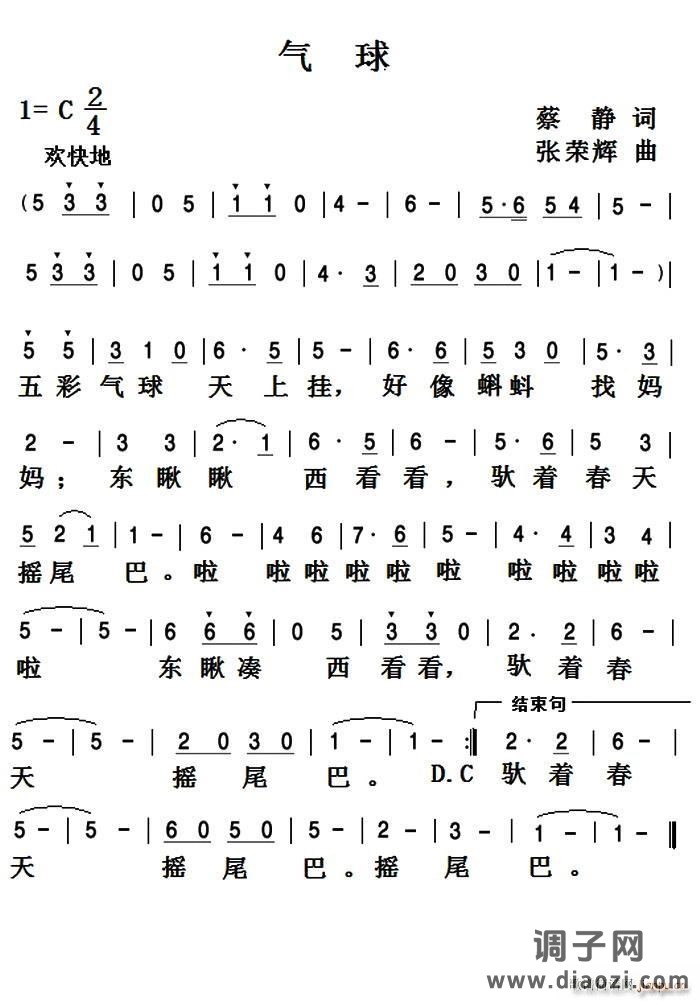 气 球
1= C 2/4
蔡 静 词
欢快地
张荣辉 曲
(5 3 3 | 0 5 | 1 1 0 | 4 - | 6 - | 5·6 5 4 | 5 - |
5 3 3 | 0 5 | 1 1 0 | 4· 3 | 2 0 3 0 | 1 - | 1 - ) |
5 5 | 3 1 0 | 6· 5 | 5 - | 6· 6 | 5 3 0 | 5· 3 |
五 彩 气 球 天 上 挂, 好 像 蝌蚪 找 妈
2 - | 3 3 | 2· 1 | 6· 5 | 6 - | 5· 6 | 5 5 |
妈; 东 瞅瞅 西 看 看, 驮 着 春 天
5 2 1 | 1 - | 6 - | 4 6 | 7· 6 | 5 - | 4· 4 | 3 4 |
摇尾 巴。啦 啦啦啦啦 啦 啦啦啦啦
5 - | 5 - | 6 6 6 | 0 5 | 3 3 0 | 2· 2 | 6 - |
啦 东 瞅凑 西 看看, 驮 着 春
结束句
5 - | 5 - | 2 0 3 0 | 1 - | 1 - :| 2· 2 | 6 - |
天 摇 尾 巴。 D.C 驮 着 春
5 - | 5 - | 6 0 5 0 | 5 - | 2 - | 3 - | 1 - | 1 - ‖
天 摇 尾 巴。摇 尾 巴。
调子网
www.diaozi.com